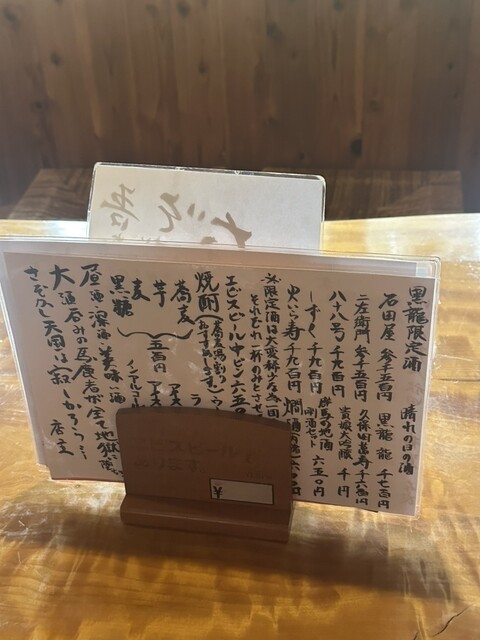 黒龍限定酒 晴れの日の酒
石田屋 参千五百円 黒龍 龍 千七百円
二左衛門 参千五百円 久保田萬寿 千六百円
八十八号 千九百円 貴娘大吟醸 千円
しずく 千九百円 群馬の地酒 利酒セット 六五〇円
火いら寿 千九百円 燗酒
※限定酒は大変稀少な為一回
それぞれ一杯のみとさせ
エビスビール中ビン 六五〇
焼酎（蕎麦湯割り おすすめします）
蕎麦
芋
麦
黒糖
五百円
昼酒深酒美味い酒
大酒呑みの馬鹿者が全て地獄に落ち
さぞかし天国は寂しかろう…
店主
¥